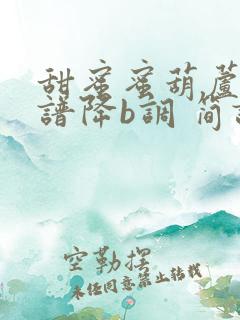 甜蜜蜜葫蘆
譜降b調 簡
空勒摆
未经同意禁止转载